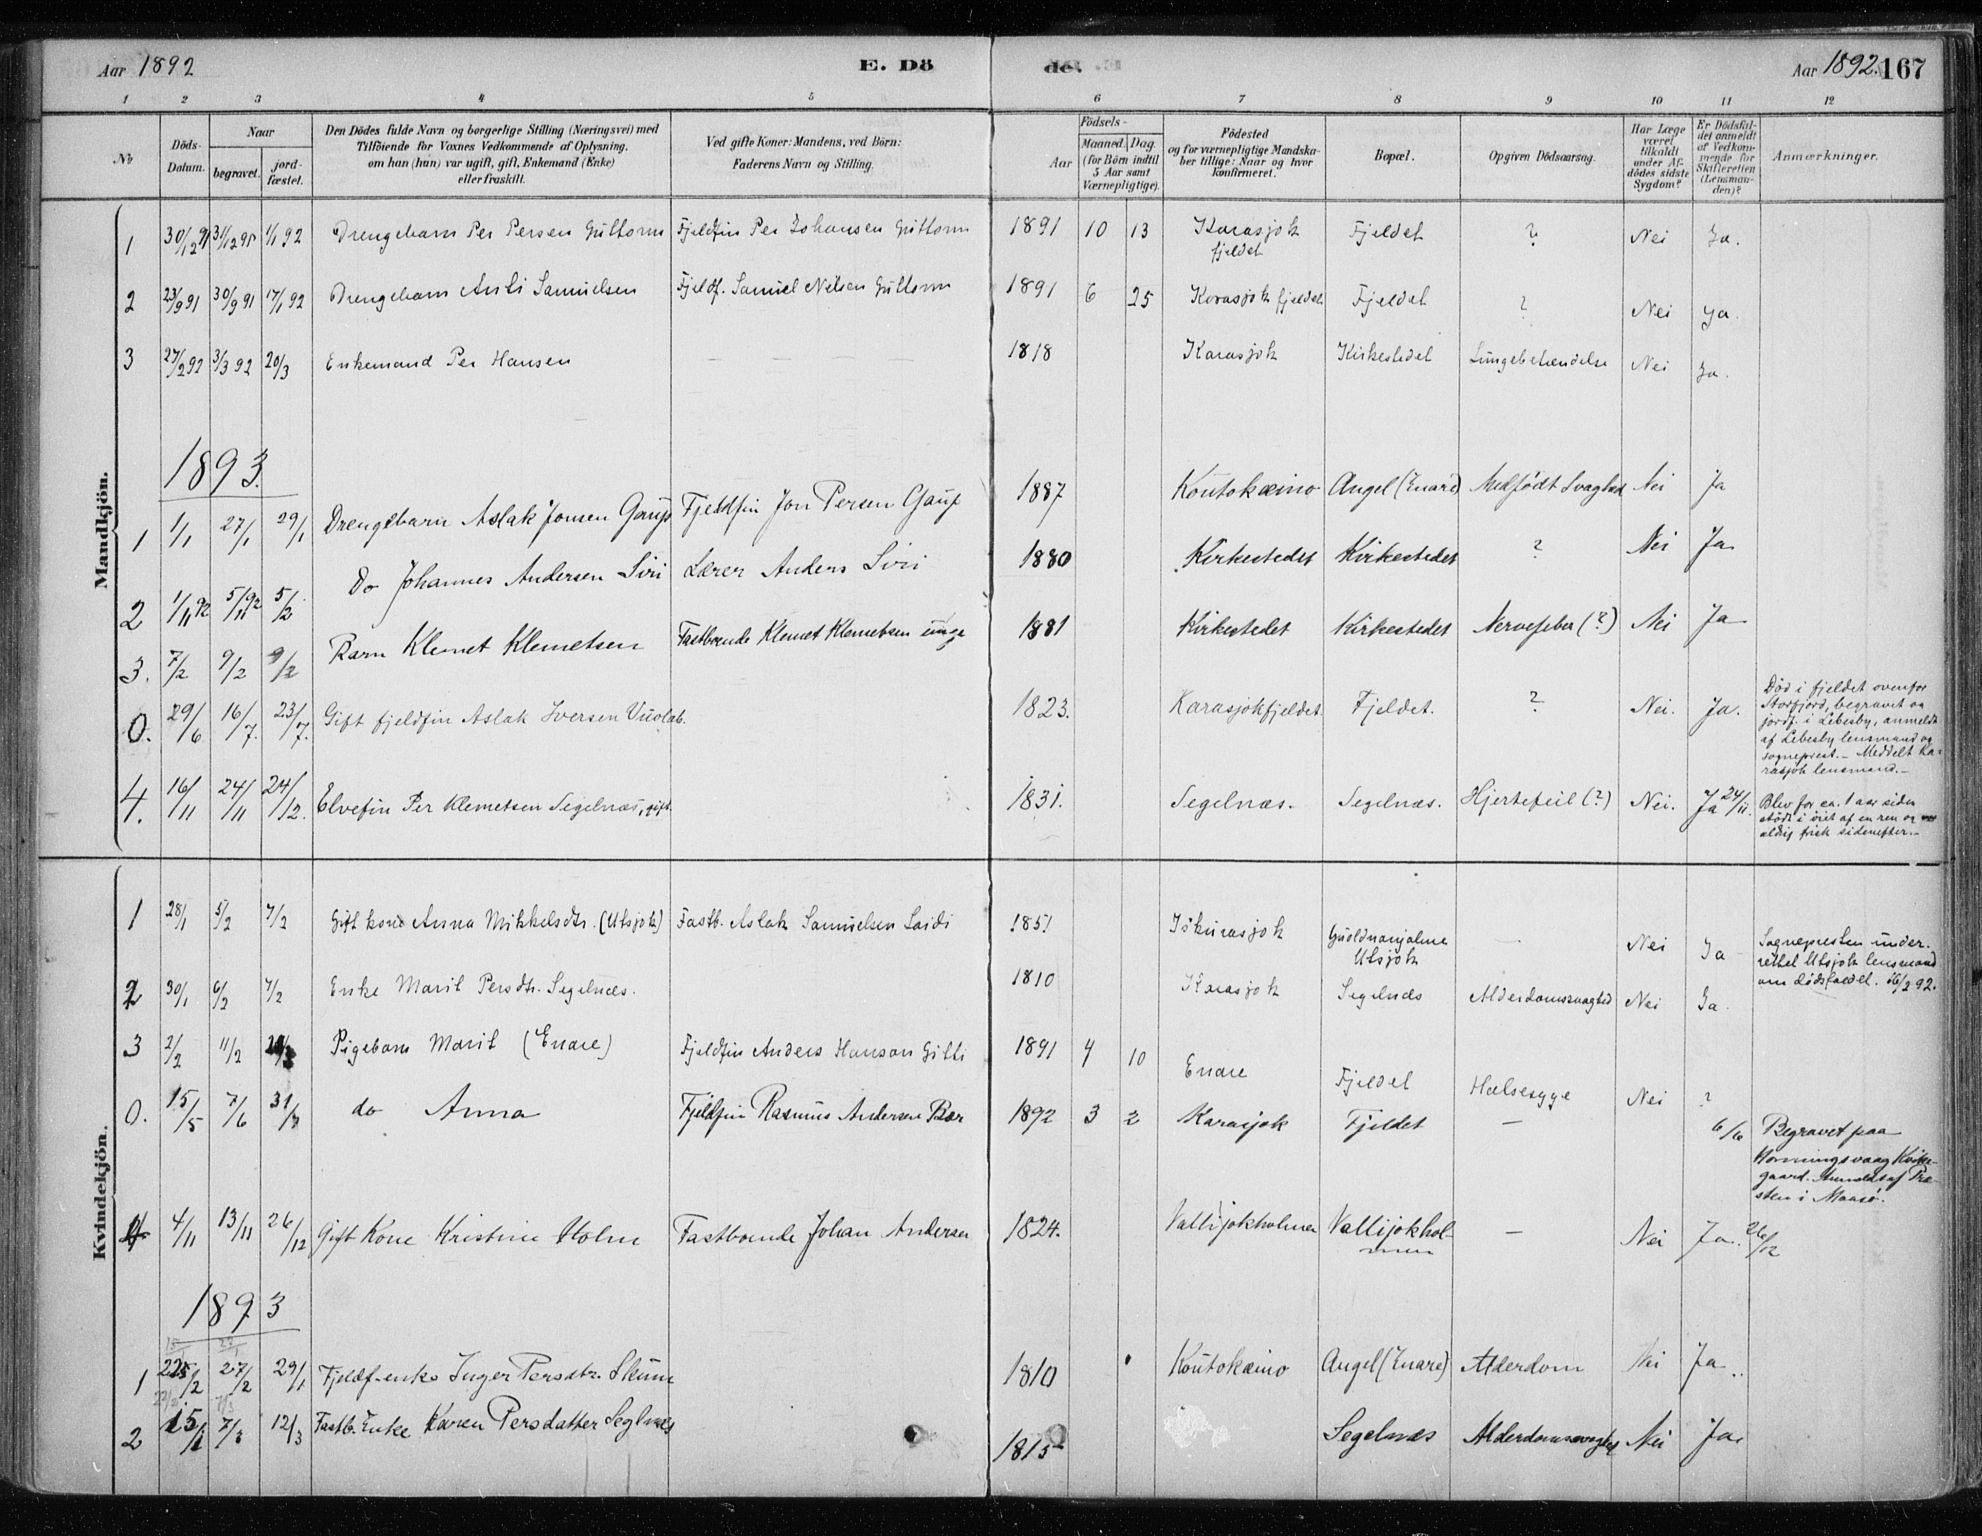 Aar 1892 E. Dö de. Aar 1892. 167
1 2 3 4 5 6 7 8 9 10 11 12
No
Döds-Datum.
Naar
begravet.
jord-fæstet.
Den Dödes fulde Navn og borgerlige Stilling (Næringsvei) med
Tilföiende for Voxnes Vedkommende af Oplysning,
om han (hun) var ugift, gift, Enkemand (Enke)
eller fraskilt.
Ved gifte Koner: Mandens, ved Börn:
Faderens Navn og Stilling.
Födsels-
Aar
Maaned. Dag.
(for Börn indtil
5 Aar samt
Værnepligtige).
Födested
og for værnepligtige Mandska-
ber tillige: Naar og hvor
konfirmeret.
Bopæl.
Opgiven Dödsaarsag.
Har Læge
været
tilkaldt
under Af-
dödes sidste
Sygdom?
Er Dödsfal-
det anmeldt
af Vedkom-
mende for
Skifteretten
(Lensman-
den)?
Anmærkninger.
Mandkjön.
1 30/12 91 31/12 91 1/1 92 Drengebarn Per Persen Guttorm Fjeldfin Per Johansen Guttorm 1891 10 13 Karasjok fjeldet Fjeldet ? Nei Ja.
2 23/9 91 30/9 91 17/1 92 Drengebarn Anti Samuelsen Fjeldf. Samuel Nilsen Guttorm 1891 6 25 Karasjok fjeldet Fjeldet ? Nei Ja.
3 27/2 92 3/3 92 20/3 Enkemand Per Hansen 1818 Karasjok Kirkestedet Lungebetændelse Nei Ja.
1893.
1 1/1 27/1 29/1 Drengebarn Aslak Jonsen Gaup Fjeldfin Jon Persen Gaup 1887 Koutokæino Angel (Enare) Medfödt Svaghed Nei Ja
2 1/11 92 5/11 92 5/2 Do Johannes Andersen Siri Lærer Anders Siri 1880 Kirkestedet Kirkestedet ? Nei Ja
3. 7/2 9/2 9/2 Barn Klemet Klemetsen Fastboende Klemet Klemetsen unge 1881 Kirkestedet Kirkestedet Nervefeber (?) Nei Ja
0. 29/6. 16/7. 23/7. Gift fjeldfin Aslak Iversen Vuolab. 1823. Karasjokfjeldet. Fjeldet. ? Nei. Ja.
Död i fjeldet ovenfor
Storfjord, begravet og
jordf. i Lebesby, anmeldt
af Lebesby lensmand og
sogneprest. – Meddelt Ka-
rasjok lensmand. –
4. 16/11 24/11 24/12. Elvefin Per Klemetsen Segelnæs, gift. 1831. Segelnæs. Segelnæs. Hjertefeil (?) Nei. Ja 24/11.
Blev for ca. 1 aar siden
stödt i öiet af en ren og var
aldrig frisk sidenefter. –
Kvindekjön.
1 28/1 5/2 7/2 Gift kone Anna Mikkelsdtr. (Utsjok) Fastb. Aslak Samuelsen Saidi 1851 Iskurasjok Utsjok – Nei Ja
Sognepresten under-
rettet Utsjok lensmand
om dödsfaldet. 16/2 92.
2 30/1 6/2 7/2 Enke Marit Persdtr. Segelnæs. 1810 Karasjok Segelnæs Alderdomssvaghed Nei Ja.
3 2/2 11/2 Pigebarn Marit (Enare) Fjeldfin Anders Hansen Gitti 1891 4 10 Enare Fjeldet Halsesyge Nei ?
0. 15/5 7/6 31/7 do Anna Fjeldfin Rasmus Andersen Bær 1892 3 2 Karasjok Fjeldet – 6/6
Begravet paa
Honningsvaag Kirke-
gaard. Anmeldt af Præ-
sten i Maasö.
4 4/11 13/11 26/12 Gift Kone Kristine Holm Fastboende Johan Andersen 1824. Vallijokholmen Vallijokhol-
men – Nei Ja. 26/12
1893
1 27/2 29/1 Fjeldf-enke Inger Persdtr. Skum 1810 Koutokæino Angel (Enare) Alderdom Nei Ja.
2 15/1 7/3 12/3 Fastb. Enke Karen Persdatter Seglnæs 1815 Segelnæs Alderdomssvaghed Nei Ja.